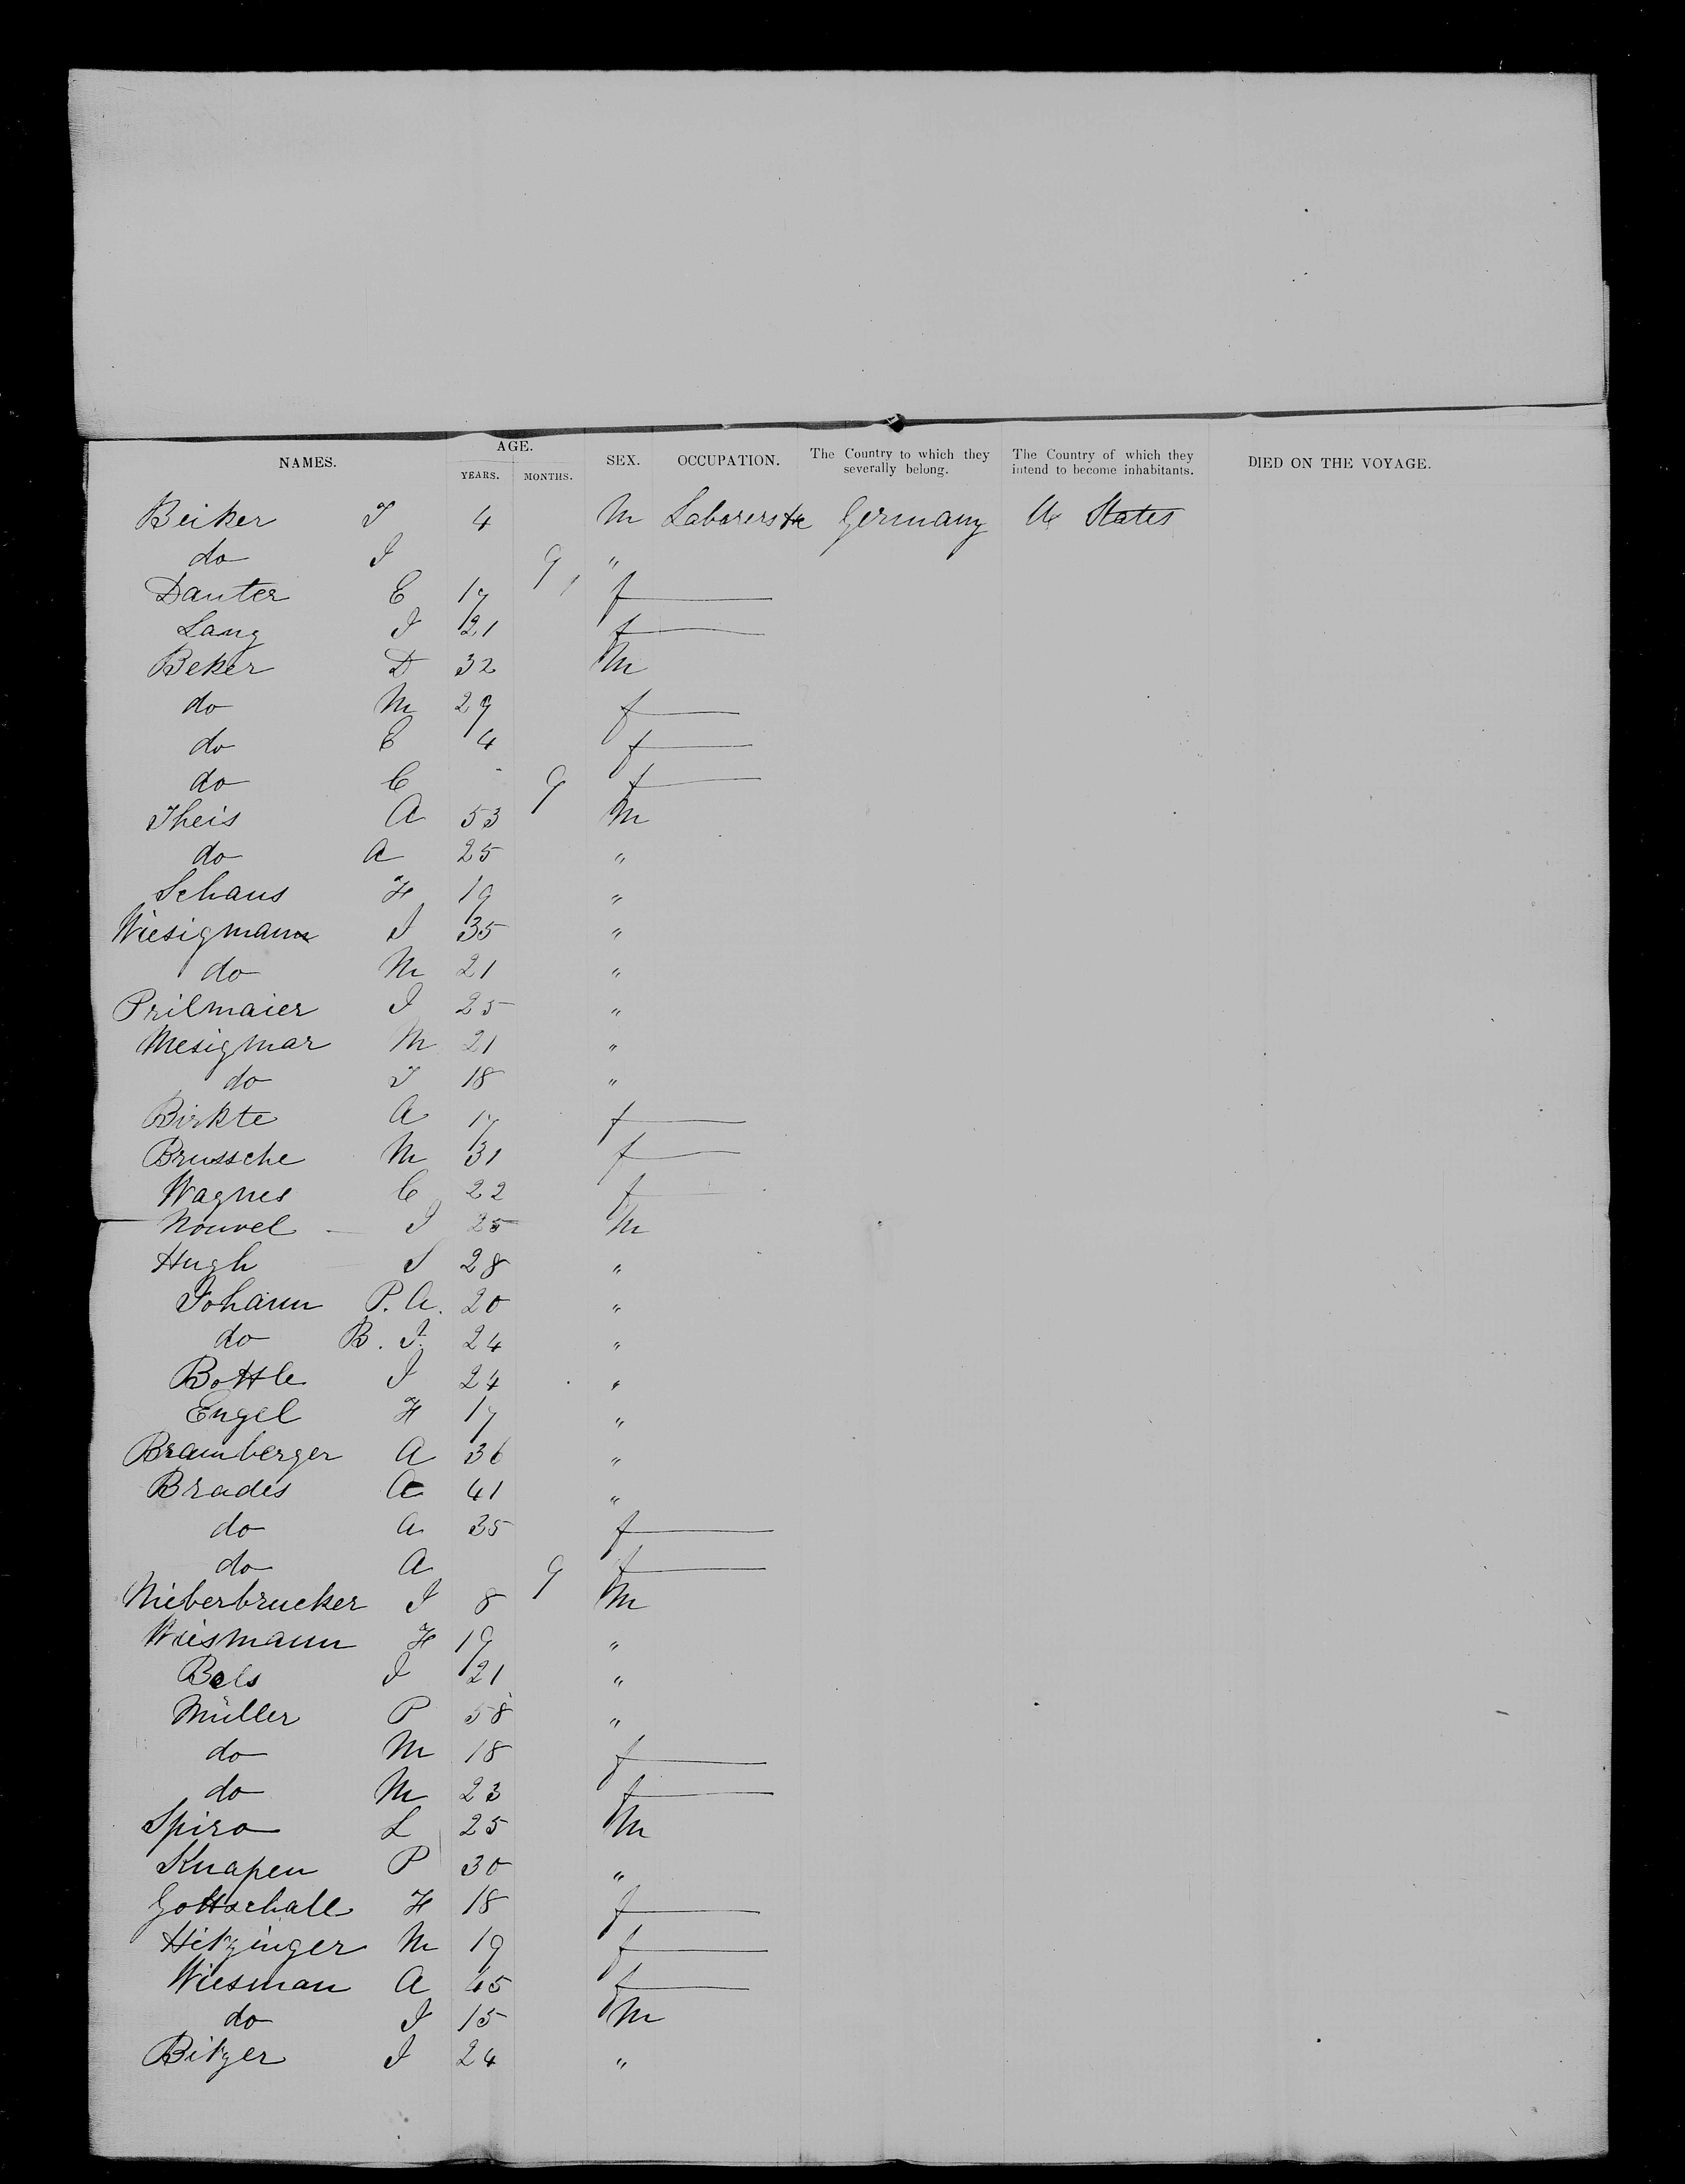 NAMES. AGE. YEARS. MONTHS. SEX. OCCUPATION. The Country to which they severally belong. The Country of which they intend to become inhabitants. DIED ON THE VOYAGE.
Beiker J 4 M Laborers &c Germany U States
do J 9 "
Danter E 17 f
Lang J 21 f
Beker D 32 M
do M 29 f
do C 4 f
do C 9 f
Theis A 53 M
do A 25 "
Schaus H 19 "
Wiesigmann J 35 "
do M 21 "
Prilmaier J 25 "
Mesigmar M 21 "
do J 18 "
Birkte A 17 f
Brussche M 31 f
Wagnes C 22 f
Nouvel J 25 M
Hugh S 28 "
Johann P. A. 20 "
do B. J. 24 "
Bottle J 24 "
Engel H 17 "
Bramberger A 36 "
Brades A 41 "
do A 35 f
do A 9 f
Nieberbrucker J 8 M
Wiesmann H 19 "
Bels J 21 "
Müller P 58 "
do M 18 f
do M 23 f
Spiro L 25 M
Knapen P 30 "
Gottschall H 18 f
Hitzinger M 19 f
Wiesman A 45 f
do J 15 M
Bitzer J 24 "